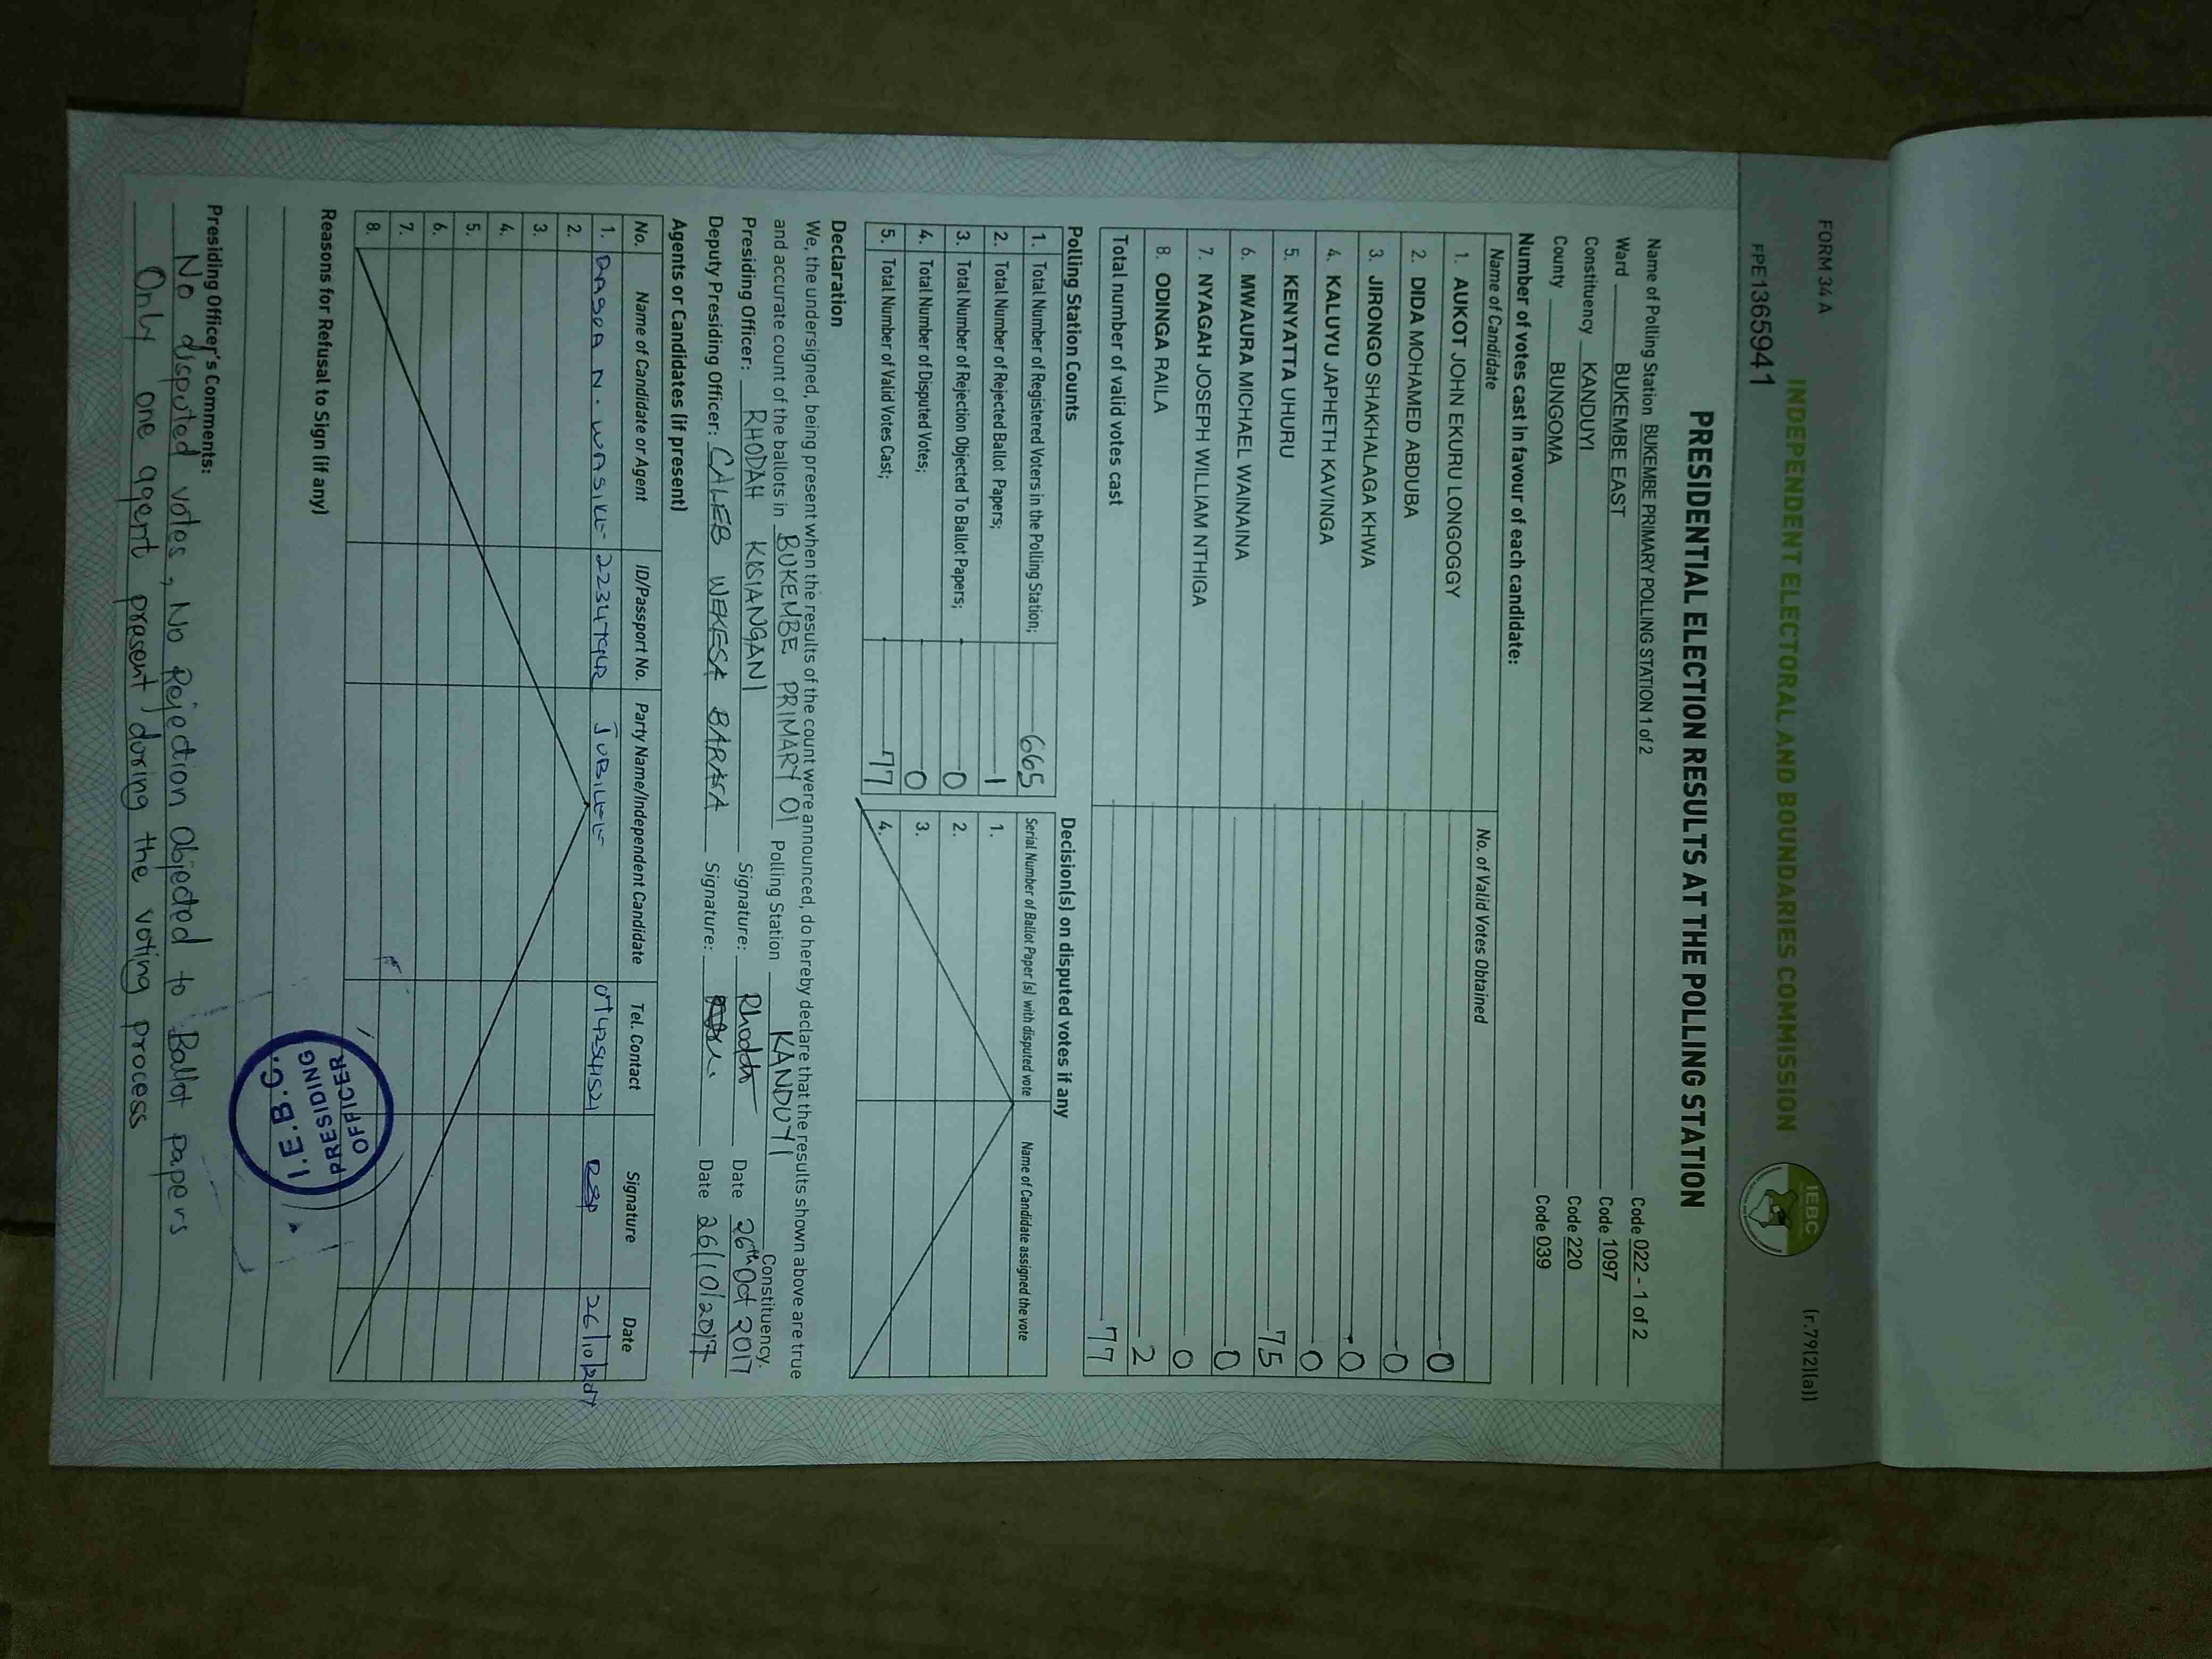 FORM 34 A
(r.79(2)(a))
INDEPENDENT ELECTORAL AND BOUNDARIES COMMISSION
IEBC
PPE1365941
PRESIDENTIAL ELECTION RESULTS AT THE POLLING STATION
Name of Polling Station BUKEMBE PRIMARY POLLING STATION 1 of 2 Code 022 - 1 of 2
Ward BUKEMBE EAST Code 1097
Constituency KANDUYI Code 220
County BUNGOMA Code 039
Number of votes cast in favour of each candidate:
Name of Candidate No. of Valid Votes Obtained
1. AUKOT JOHN EKURU LONGOGGY 0
2. DIDA MOHAMED ABDUBA 0
3. JIRONGO SHAKHALAGA KHWA 0
4. KALUYU JAPHETH KAVINGA 0
5. KENYATTA UHURU 75
6. MWAURA MICHAEL WAINAINA 0
7. NYAGAH JOSEPH WILLIAM NTHIGA 0
8. ODINGA RAILA 2
Total number of valid votes cast 77
Polling Station Counts
1. Total Number of Registered Voters in the Polling Station; 665
2. Total Number of Rejected Ballot Papers; 1
3. Total Number of Rejection Objected To Ballot Papers; 0
4. Total Number of Disputed Votes; 0
5. Total Number of Valid Votes Cast; 77
Decision(s) on disputed votes if any
Serial Number of Ballot Paper (s) with disputed vote Name of Candidate assigned the vote
1.
2.
3.
4.
Declaration
We, the undersigned, being present when the results of the count were announced, do hereby declare that the results shown above are true
and accurate count of the ballots in BUKEMBE PRIMARY 01 Polling Station KANDUYI Constituency.
Presiding Officer: RHODAH KISIANGANI Signature: Rhodah Date 26th Oct 2017
Deputy Presiding Officer: CALEB WEKESA BARASA Signature: Date 26/10/2017
Agents or Candidates (if present)
No. Name of Candidate or Agent ID/Passport No. Party Name/Independent Candidate Tel. Contact Signature Date
1. N. WASIKE JUBILEE 26/10/2017
2.
3.
4.
5.
6.
7.
8.
Reasons for Refusal to Sign (if any)
I.E.B.C.
PRESIDING
OFFICER
Presiding Officer's Comments:
No disputed votes, No Rejection Objected to Ballot papers
Only one agent present during the voting process